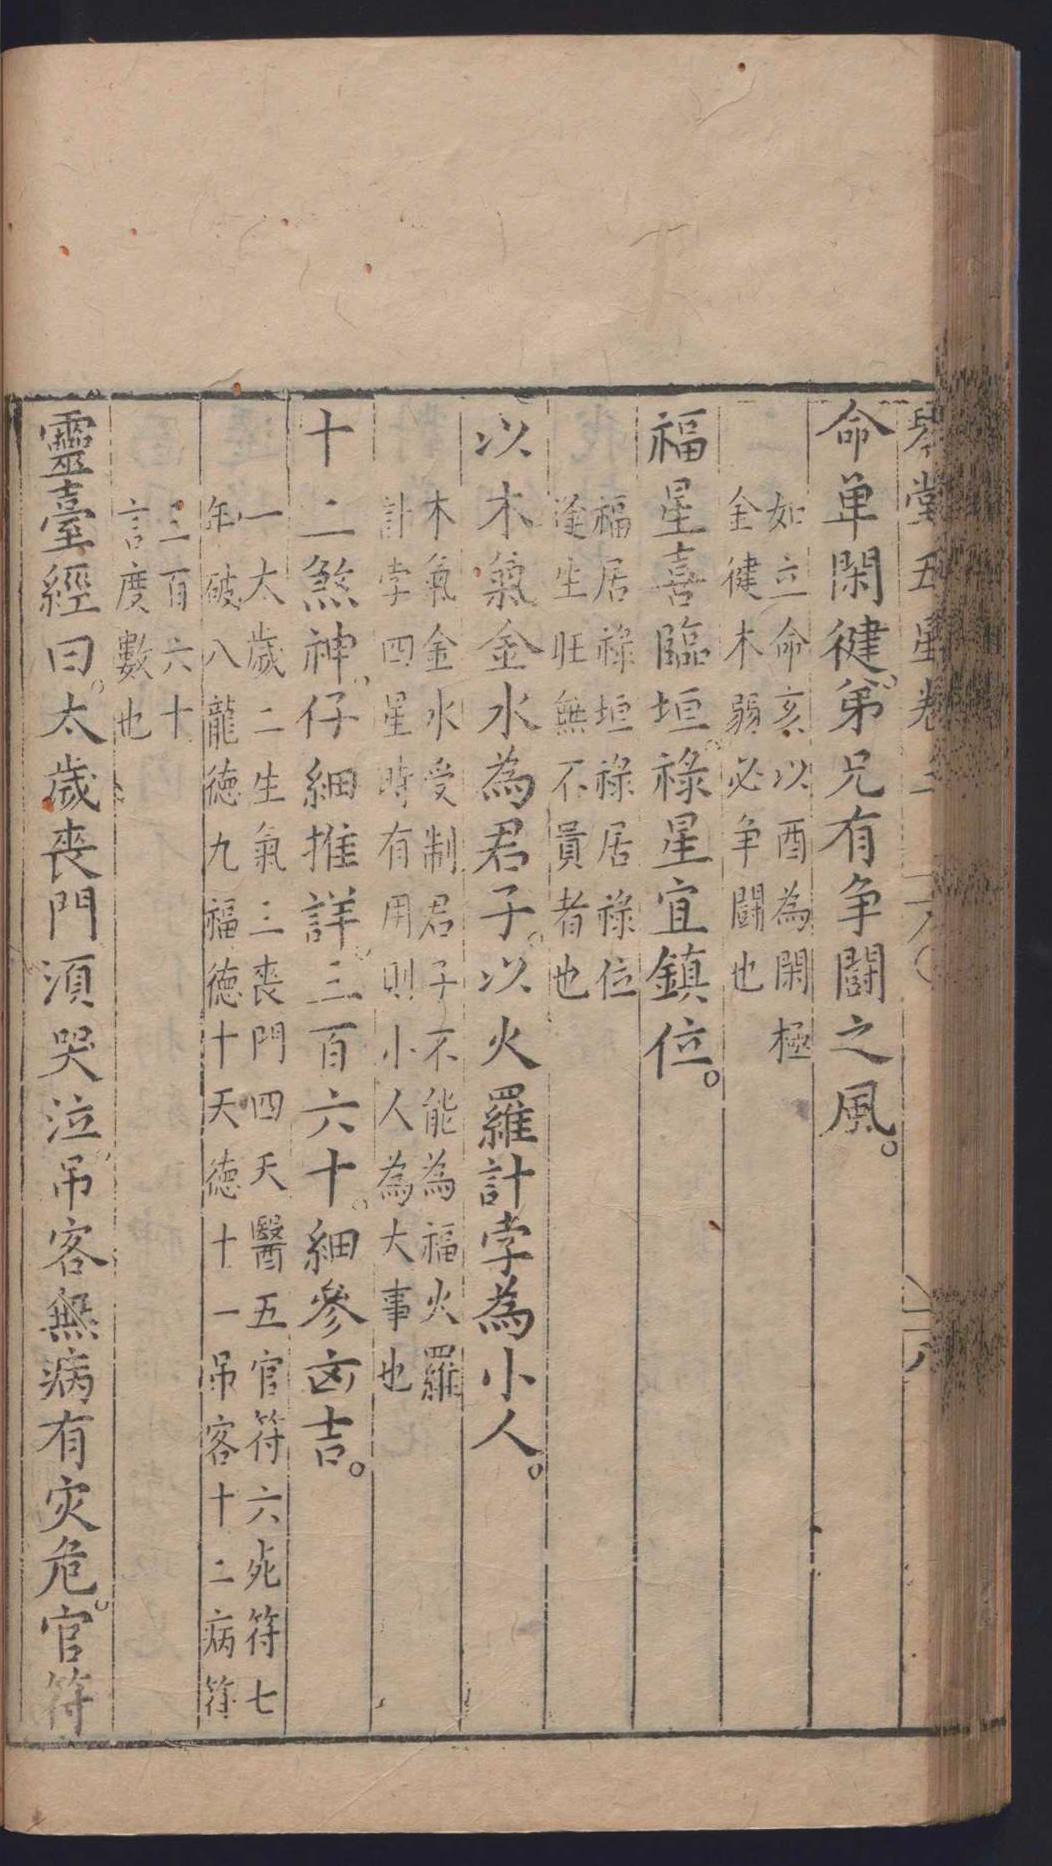 琴堂五星卷
命単閑健。弟兄有争闘之風。
如立命亥以酉為閑極
金健木弱必争闘也
福星喜臨垣。祿星宜鎮位。
福居祿垣祿居祿位
逢生旺無不貴者也
以木氣金水為君子。以火羅計孛為小人。
木氣金水受制君子不能為福火羅
計孛四星時有用則小人為大事也
十二煞神、仔細推詳。三百六十。細參㐫吉。
一太歲二生氣三喪門四天醫五官符六死符七
年破八龍德九福德十天德十一吊客十二病符
三百六十
言度數也
靈臺經曰。太歲喪門須哭泣、吊客無病有灾危。官符